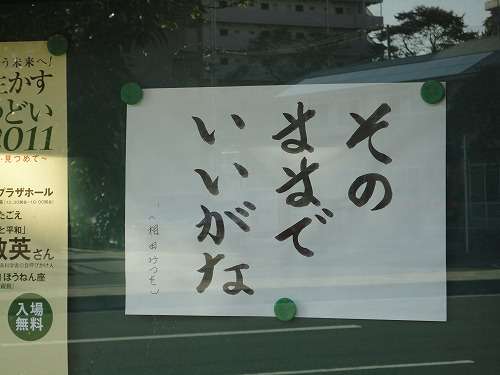 その
ままで
いいがな
(相田みつを)
う未来へ!
生かす
つどい
2011
見つめて～
プラザホール
たごえ
と平和」
敏英さん
ほうねん座
入場
無料